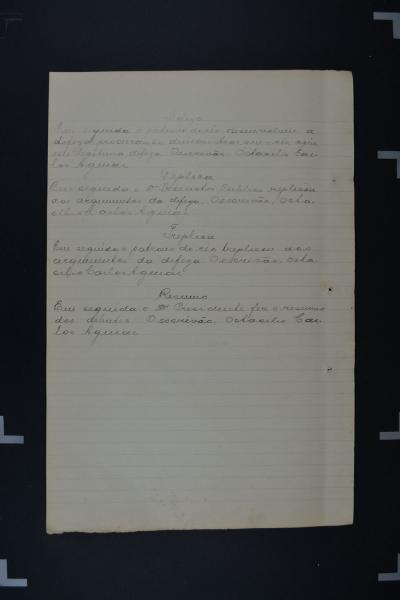 Defeza
Em seguida o patrono do réo desenvolveu a
defeza procurando demonstrar que o réo agiu
em legitima defeza. O escrivão, Octacilio Car-
los Aguiar
Replica
Em seguida o Dr Promotor Publico replicou
aos argumentos da defeza. O escrivão, Octa-
cilio Carlos Aguiar
Treplica
Em seguida o patrono do réo treplicou dos
argumentos da defeza. O escrivão, Octa-
cilio Carlos Aguiar
Resumo
Em seguida o Dr Presidente fez o resumo
dos debates. O escrivão, Octacilio Car-
los Aguiar